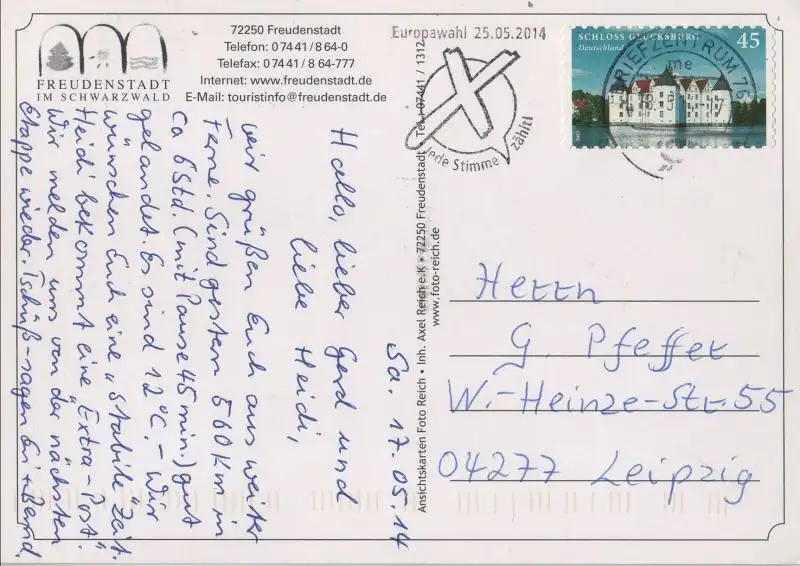 FREUDENSTADT
IM SCHWARZWALD
72250 Freudenstadt
Telefon: 0 74 41 / 8 64-0
Telefax: 0 74 41 / 8 64-777
Internet: www.freudenstadt.de
E-Mail: touristinfo@freudenstadt.de
Sa. 17.05.14
Hallo, lieber Gerd und
liebe Heidi,
wir grüßen Euch aus weiter
Ferne. Sind gestern 560 Km in
ca 6 Std. (mit Pause 45 min.) gut
gelandet. Es sind 12°C. - Wir
wünschen Euch eine „stabile Zeit.
Heidi bekommt eine "Extra-Post".
Wir melden uns von der nächsten
Etappe wieder. Tschüß-sagen
Ansichtskarten Foto Reich • Inh. Axel Reich e.K • 72250 Freudenstadt Tel. 07441 / 1312
www.foto-reich.de
Europawahl 25.05.2014
Jede Stimme zählt!
SCHLOSS GLÜCKSBURG
Deutschland
45
BRIEFZENTRUM 76
Herrn
G. Pfeffer
W.-Heinze-Str. 55
04277 Leipzig